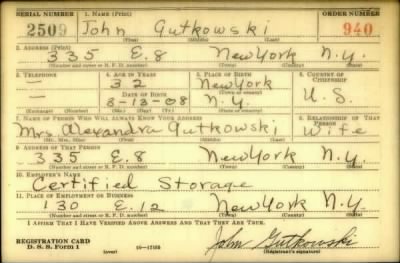 SERIAL NUMBER 1. NAME (Print) ORDER NUMBER
2509 John Gutkowski 940
(First) (Middle) (Last)
2. ADDRESS (Print)
335 E. 8 New York N.Y.
(Number and street or R. F. D. number) (Town) (County) (State)
3. TELEPHONE 4. AGE IN YEARS 5. PLACE OF BIRTH 6. COUNTRY OF CITIZENSHIP
— 32 New York
DATE OF BIRTH (Town or county)
— 8-13-08 N.Y. U.S.
(Exchange) (Number) (Mo.) (Day) (Yr.) (State or country)
7. NAME OF PERSON WHO WILL ALWAYS KNOW YOUR ADDRESS 8. RELATIONSHIP OF THAT PERSON
Mrs. Alexandra Gutkowski Wife
(Mr., Mrs., Miss) (First) (Middle) (Last)
9. ADDRESS OF THAT PERSON
335 E. 8 New York N.Y.
(Number and street or R. F. D. number) (Town) (County) (State)
10. EMPLOYER'S NAME
Certified Storage
11. PLACE OF EMPLOYMENT OR BUSINESS
130 E. 12 New York N.Y.
(Number and street or R. F. D. number) (Town) (County) (State)
I AFFIRM THAT I HAVE VERIFIED ABOVE ANSWERS AND THAT THEY ARE TRUE.
REGISTRATION CARD
D. S. S. Form 1 (over) 16—17105 John Gutkowski
(Registrant's signature)